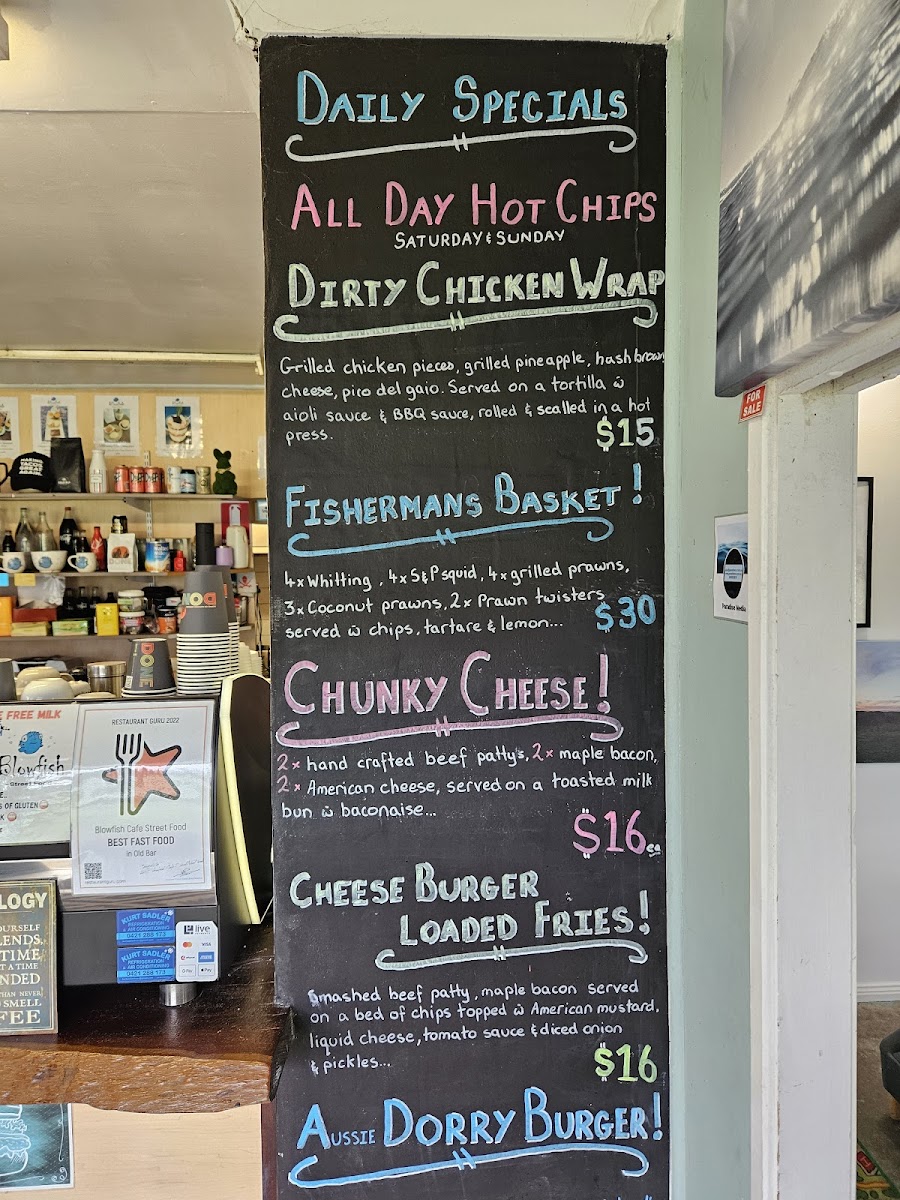 DAILY SPECIALS
ALL DAY HOT CHIPS
SATURDAY & SUNDAY
DIRTY CHICKEN WRAP
Grilled chicken pieces, grilled pineapple, hash brown
cheese, pico del gaio. Served on a tortilla w
aioli sauce & BBQ sauce, rolled & sealled in a hot
press.
$15
FISHERMANS BASKET!
4x Whitting, 4x S&P squid, 4x grilled prawns,
3x Coconut prawns, 2x Prawn twisters
served w chips, tartare & lemon...
$30
CHUNKY CHEESE!
2x hand crafted beef patty's, 2x maple bacon,
2x American cheese, served on a toasted milk
bun w baconaise...
$16 ea
CHEESE BURGER
LOADED FRIES!
Smashed beef patty, maple bacon served
on a bed of chips topped w American mustard,
liquid cheese, tomato sauce & diced onion
& pickles...
$16
AUSSIE DORRY BURGER!
FOR
SALE
Paradise Media
MAKING
TACOS
GREAT
AGAIN
FREE MILK
Blowfish
Street Food
OF GLUTEN
RESTAURANT GURU 2022
Blowfish Cafe Street Food
BEST FAST FOOD
in Old Bar
restaurantguru.com
KURT SADLER
REFRIGERATION
& AIR CONDITIONING
0421 268 173
KURT SADLER
REFRIGERATION
& AIR CONDITIONING
0421 268 173
live
VISA
G Pay
Pay
OLOGY
OURSELF
LENDS,
TIME
AT A TIME
NDED
THAN NEVER
SMELL
FEE